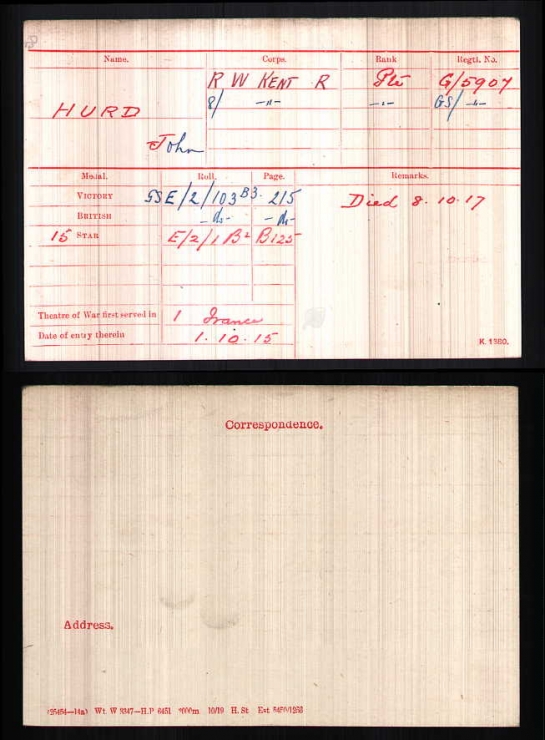 Name. Corps. Rank Regtl. No.
R W KENT R Pte G/5907
HURD R/ —"— —"— GS/ —"—
John
Medal. Roll. Page. Remarks.
VICTORY GSE/2/103 B3. 215 Died 8.10.17
BRITISH —do— —do—
15 STAR E/2/1 B2 B125
Theatre of War first served in 1 France
Date of entry therein 1.10.15
K. 1380.
Correspondence.
Address.
Wt. W 3347—H.P 6451 10/19 H. St